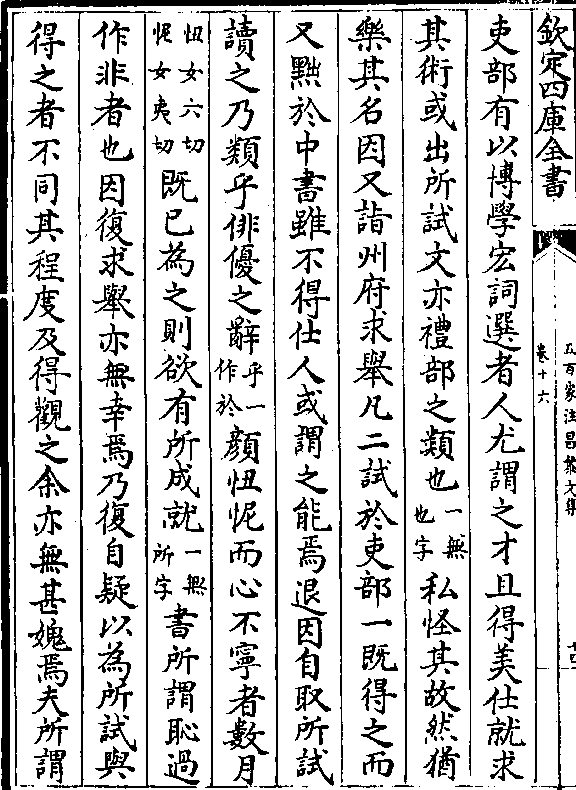 欽定四庫全書
五百家注昌黎文集
卷十六
十四
吏部有以博學宏詞選者人尤謂之才且得美仕就求
其術或出所試文亦禮部之類也一無也字私怪其故然猶
樂其名因又詣州府求舉凡二試於吏部一既得之而
又黜於中書雖不得仕人或謂之能焉退因自取所試
讀之乃類乎俳優之辭乎一作於顔忸怩而心不寧者數月
忸女六切怩女夷切既已為之則欲有所成就一無所字書所謂恥過
作非者也因復求舉亦無幸焉乃復自疑以為所試與
得之者不同其程度及得觀之余亦無甚媿焉夫所謂